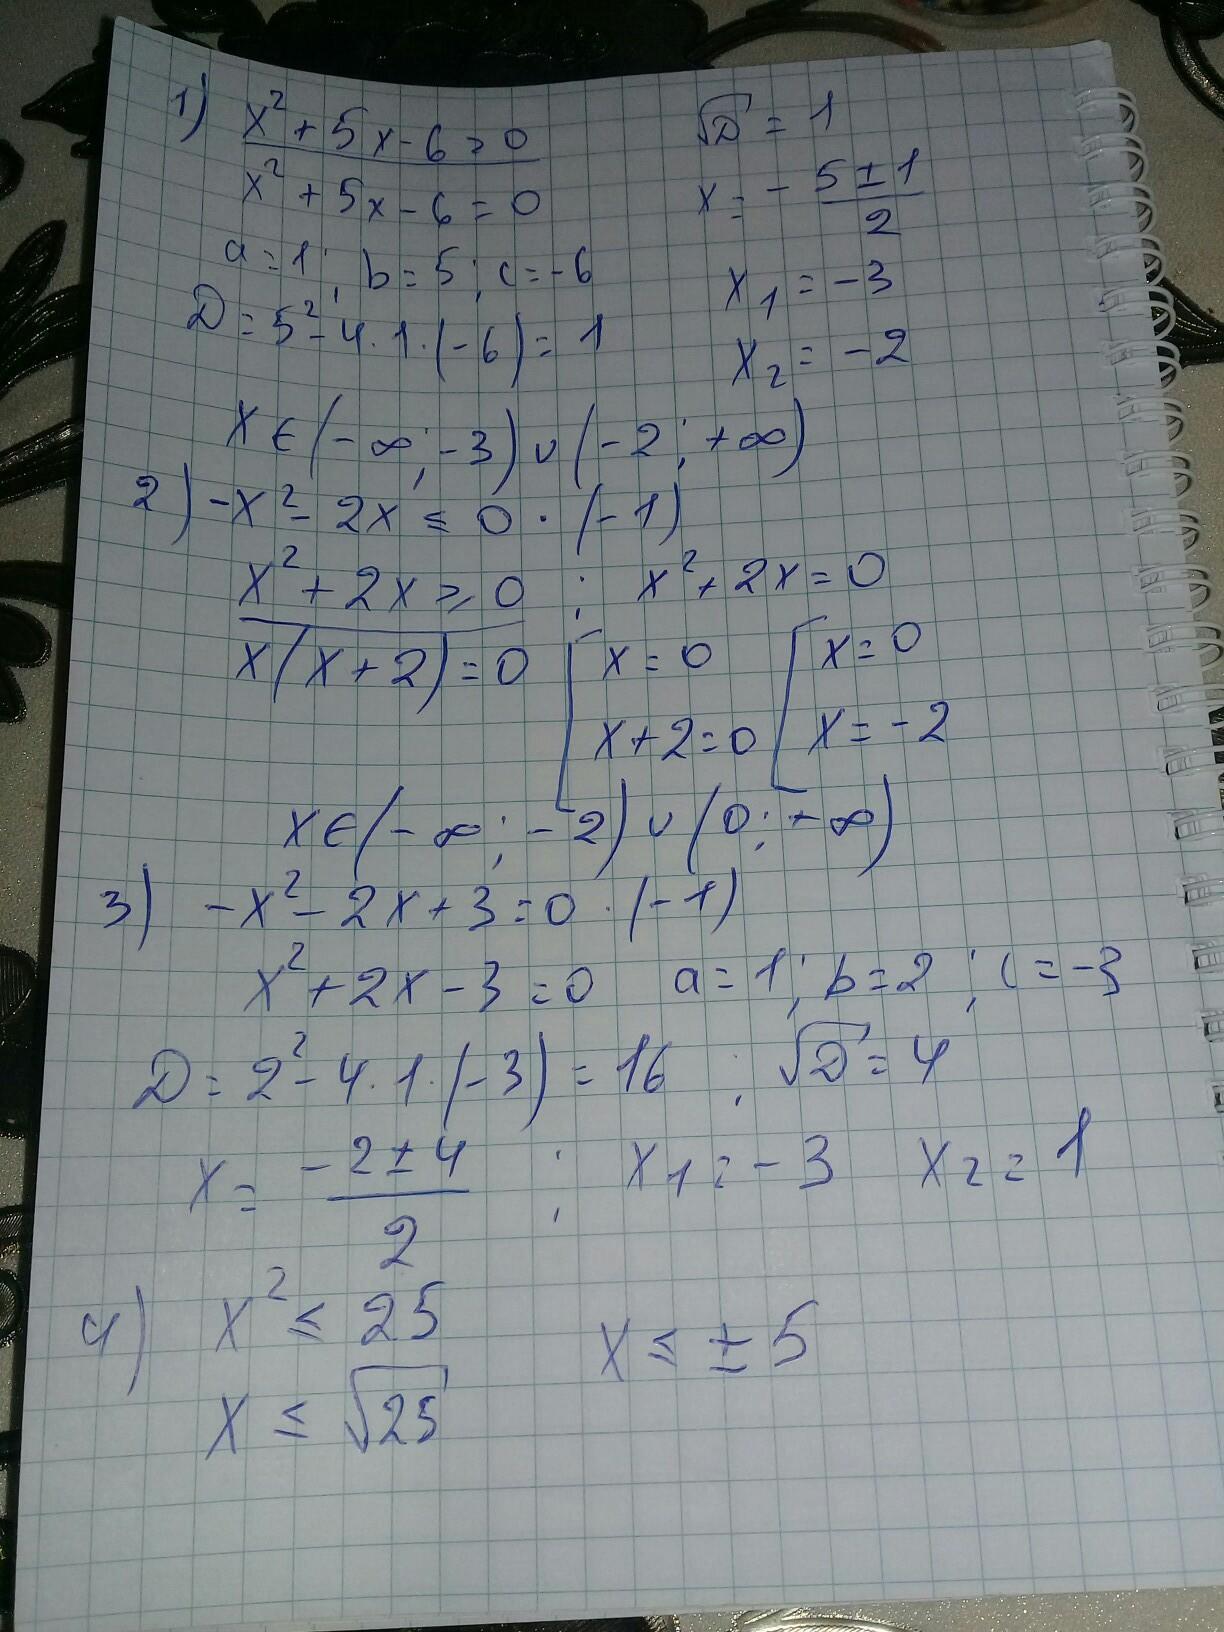 1) x² + 5x - 6 > 0
x² + 5x - 6 = 0
a = 1; b = 5; c = -6
D = 5² - 4 · 1 · (-6) = 1
√D = 1
x = - 5 ± 1 / 2
x₁ = -3
x₂ = -2
x ∈ (-∞; -3) ∪ (-2; +∞)
2) -x² - 2x ≤ 0 · (-1)
x² + 2x ≥ 0 ; x² + 2x = 0
x(x + 2) = 0 [ x = 0 [ x = 0
x + 2 = 0 x = -2
x ∈ (-∞; -2) ∪ (0; +∞)
3) -x² - 2x + 3 = 0 · (-1)
x² + 2x - 3 = 0 a = 1; b = 2; c = -3
D = 2² - 4 · 1 · (-3) = 16 ; √D = 4
x = - 2 ± 4 / 2 ; x₁ = -3 x₂ = 1
4) x² ≤ 25 x ≤ ± 5
x ≤ √25